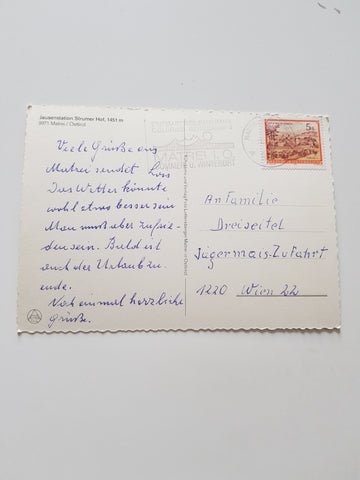 Jausenstation Strumer Hof, 1451 m
9971 Matrei / Osttirol
MATREI I.O.
SOMMER- u. WINTERURL
5
Viele Grüße aus
Matrei sendet Lois
Das Wetter könnte
wohl etwas besser sein
Man muß aber zufrie-
den sein. Bald ist
auch der Urlaub zu
ende.
Noch einmal herzliche
Grüße.
An Familie
Dreiseitel
Jägermais-Zufahrt
1220 Wien 22